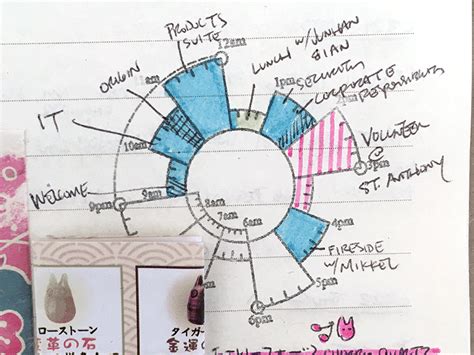 PRODUCTS
SUITE
12am
ORIGIN
IT
WELCOME
LUNCH W/JUNHAN
SIAN
1pm
SECURITY
CORPORATE
RESPONSIBILITY
VOLUNTEER
@
ST. ANTHONY
3pm
4pm
5pm
6pm
FIRESIDE
W/ MIKKEL
10am
9am
9pm
8am
7am
6am
ローストーン
変革の石
タイガー
金運の